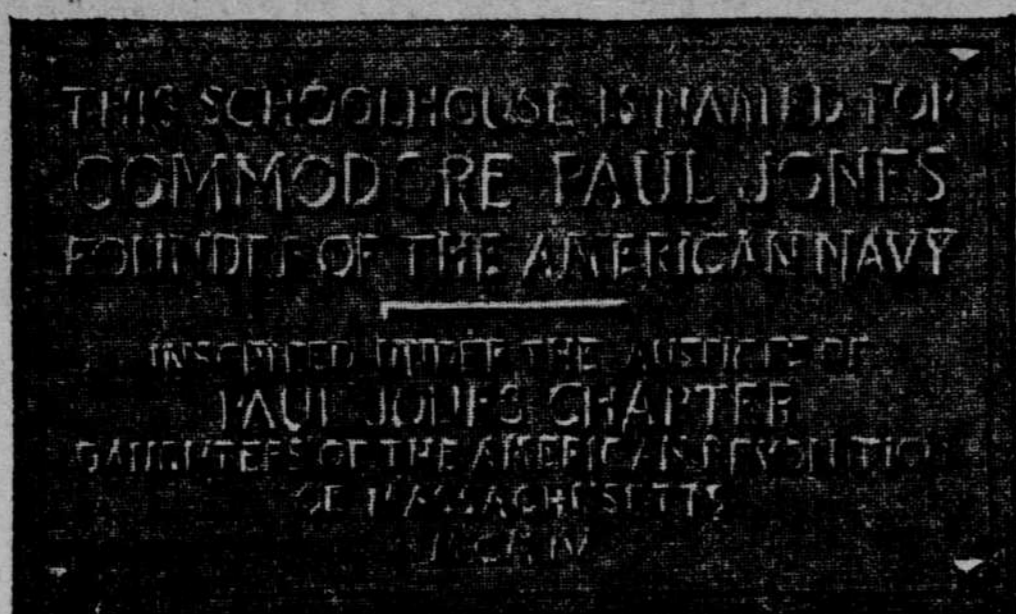 THIS SCHOOLHOUSE IS NAMED FOR
COMMODORE PAUL JONES
FOUNDER OF THE AMERICAN NAVY
INSCRIBED UNDER THE AUSPICES OF
PAUL JONES CHAPTER
DAUGHTERS OF THE AMERICAN REVOLUTION
OF MASSACHUSETTS